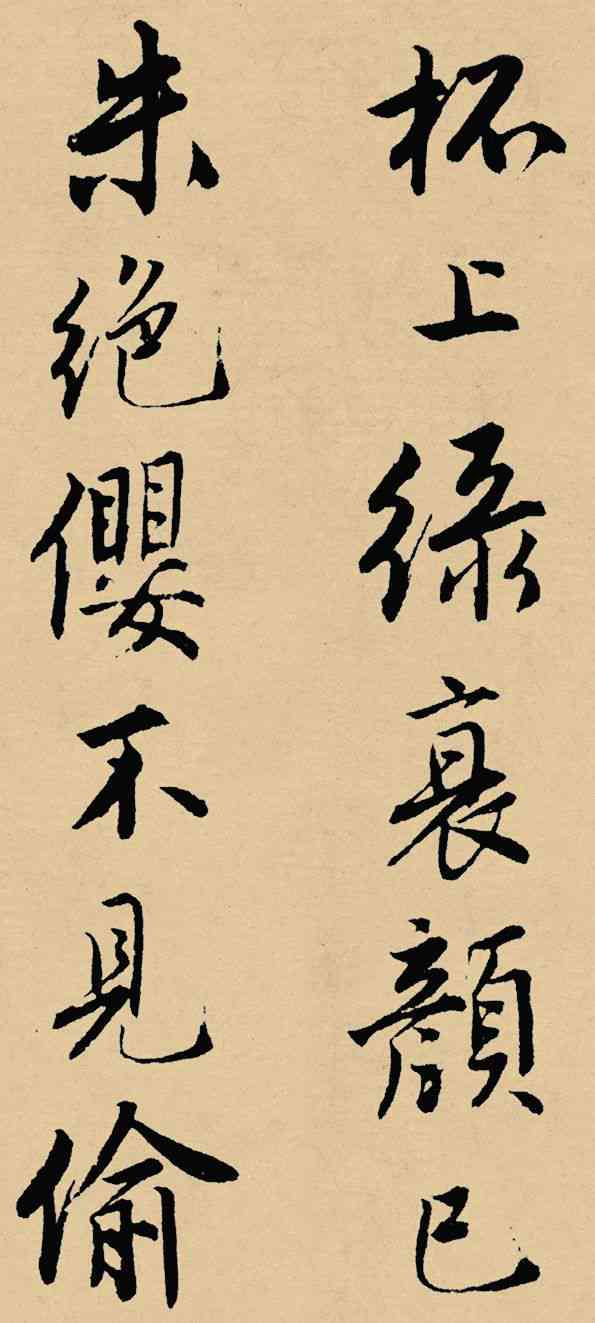 杯上綠衰顏已
朱絕儇不見偷